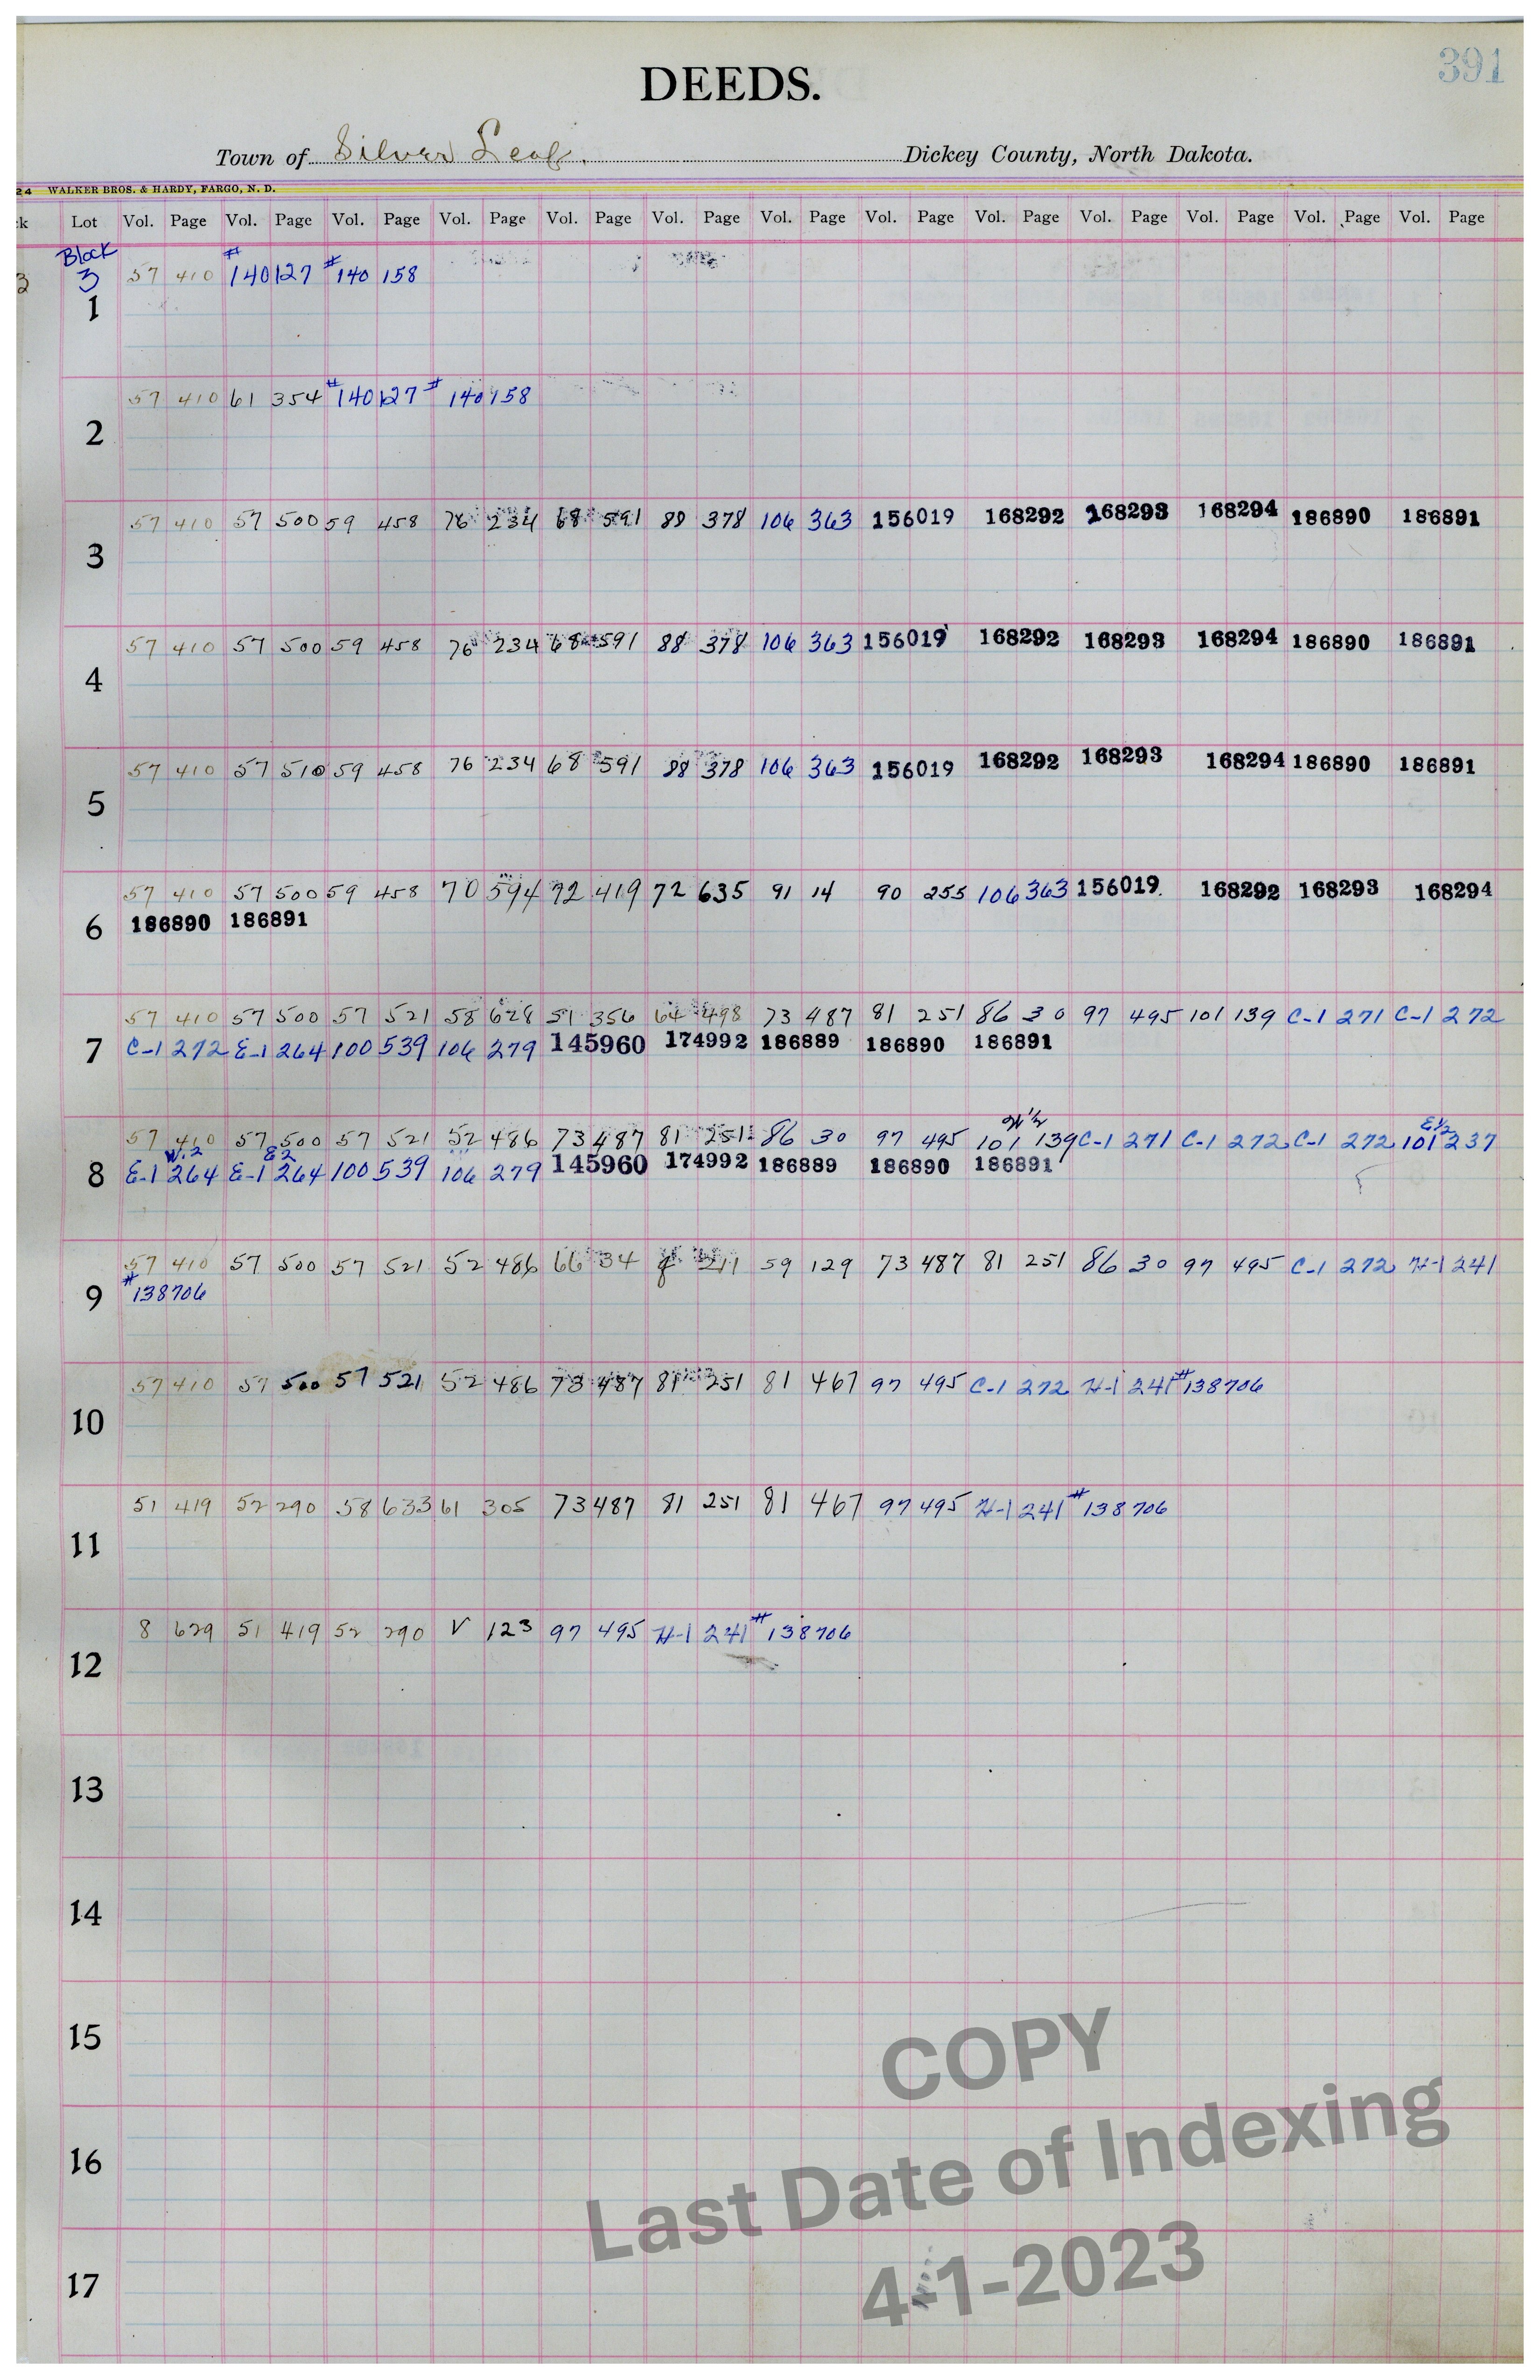 391
DEEDS.
Town of Silver Leaf. Dickey County, North Dakota.
24 WALKER BROS. & HARDY, FARGO, N. D.
k Lot Vol. Page Vol. Page Vol. Page Vol. Page Vol. Page Vol. Page Vol. Page Vol. Page Vol. Page Vol. Page Vol. Page Vol. Page Vol. Page
Block
3 3 57 410 #140127 #140158
1
57 410 61 354 #140127 #140158
2
57 410 57 500 59 458 76 234 68 591 88 378 106 363 156019 168292 168293 168294 186890 186891
3
57 410 57 500 59 458 76 234 68 591 88 378 106 363 156019 168292 168293 168294 186890 186891
4
57 410 57 510 59 458 76 234 68 591 88 378 106 363 156019 168292 168293 168294 186890 186891
5
57 410 57 500 59 458 70 594 72 419 72 635 91 14 90 255 106 363 156019. 168292 168293 168294
6 186890 186891
57 410 57 500 57 521 58 628 51 356 64 498 73 487 81 251 86 30 97 495 101 139 C-1 271 C-1 272
7 C-1 272 E-1 264 100 539 106 279 145960 174992 186889 186890 186891
W1/2 E1/2
57 410 57 500 57 521 52 486 73 487 81 251 86 30 97 495 101 139 C-1 271 C-1 272 C-1 272 101 237
W.2 E2
8 E-1 264 E-1 264 100 539 106 279 145960 174992 186889 186890 186891
57 410 57 500 57 521 52 486 66 34 211 59 129 73 487 81 251 86 30 97 495 C-1 272 H-1 241
9 #138706
57 410 57 500 57 521 52 486 73 487 81 251 81 467 97 495 C-1 272 H-1 241 #138706
10
51 419 52 290 58 633 61 305 73 487 81 251 81 467 97 495 H-1 241 #138706
11
8 629 51 419 52 290 V 123 97 495 H-1 241 #138706
12
13
14
15
16
17
COPY
Last Date of Indexing
4-1-2023